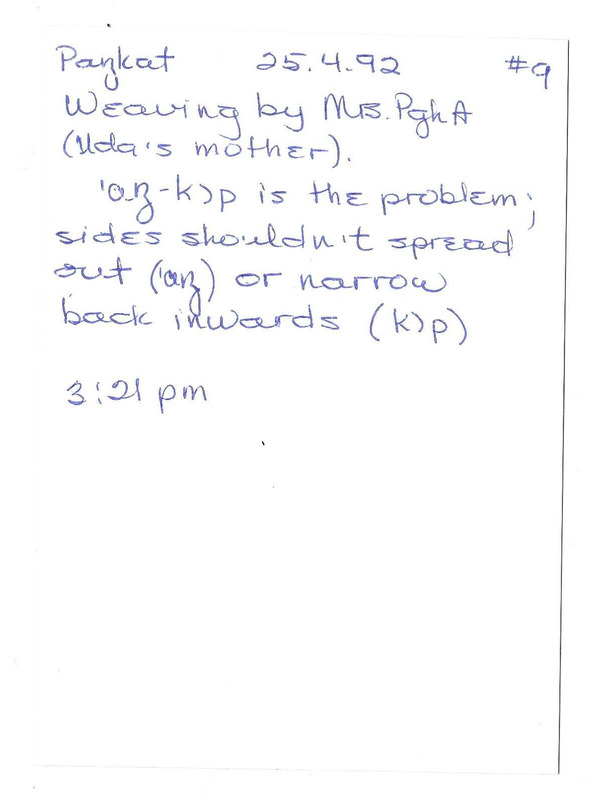 Paŋkat 25.4.92 #9
Weaving by Mrs. Pgh A
(Uda's mother).
'aŋ-kɔp is the problem;
sides shouldn't spread
out ('aŋ) or narrow
back inwards (kɔp)
3:21 pm